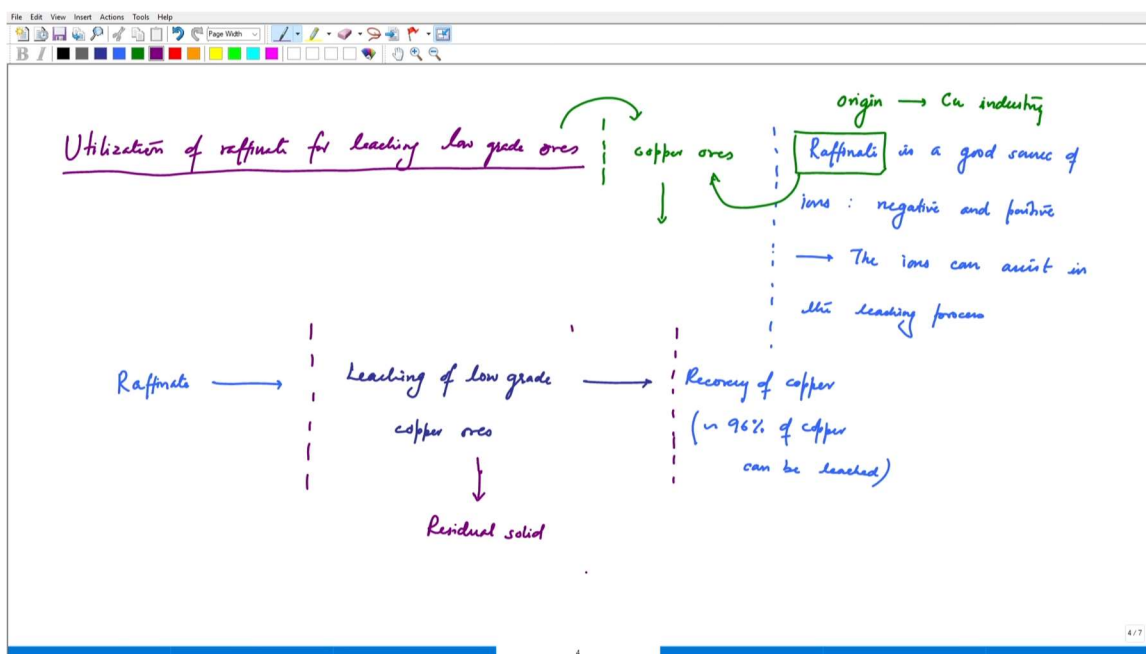 File Edit View Insert Actions Tools Help
Page Width
B I
origin → Cu industry
Utilization of raffinate for leaching low grade ores
copper ores
Raffinate is a good source of
ions : negative and positive
→ The ions can assist in
the leaching process
Raffinate →
Leaching of low grade
copper ores
→
Residual solid
Recovery of copper
(~ 96% of copper
can be leached)
4/7
4